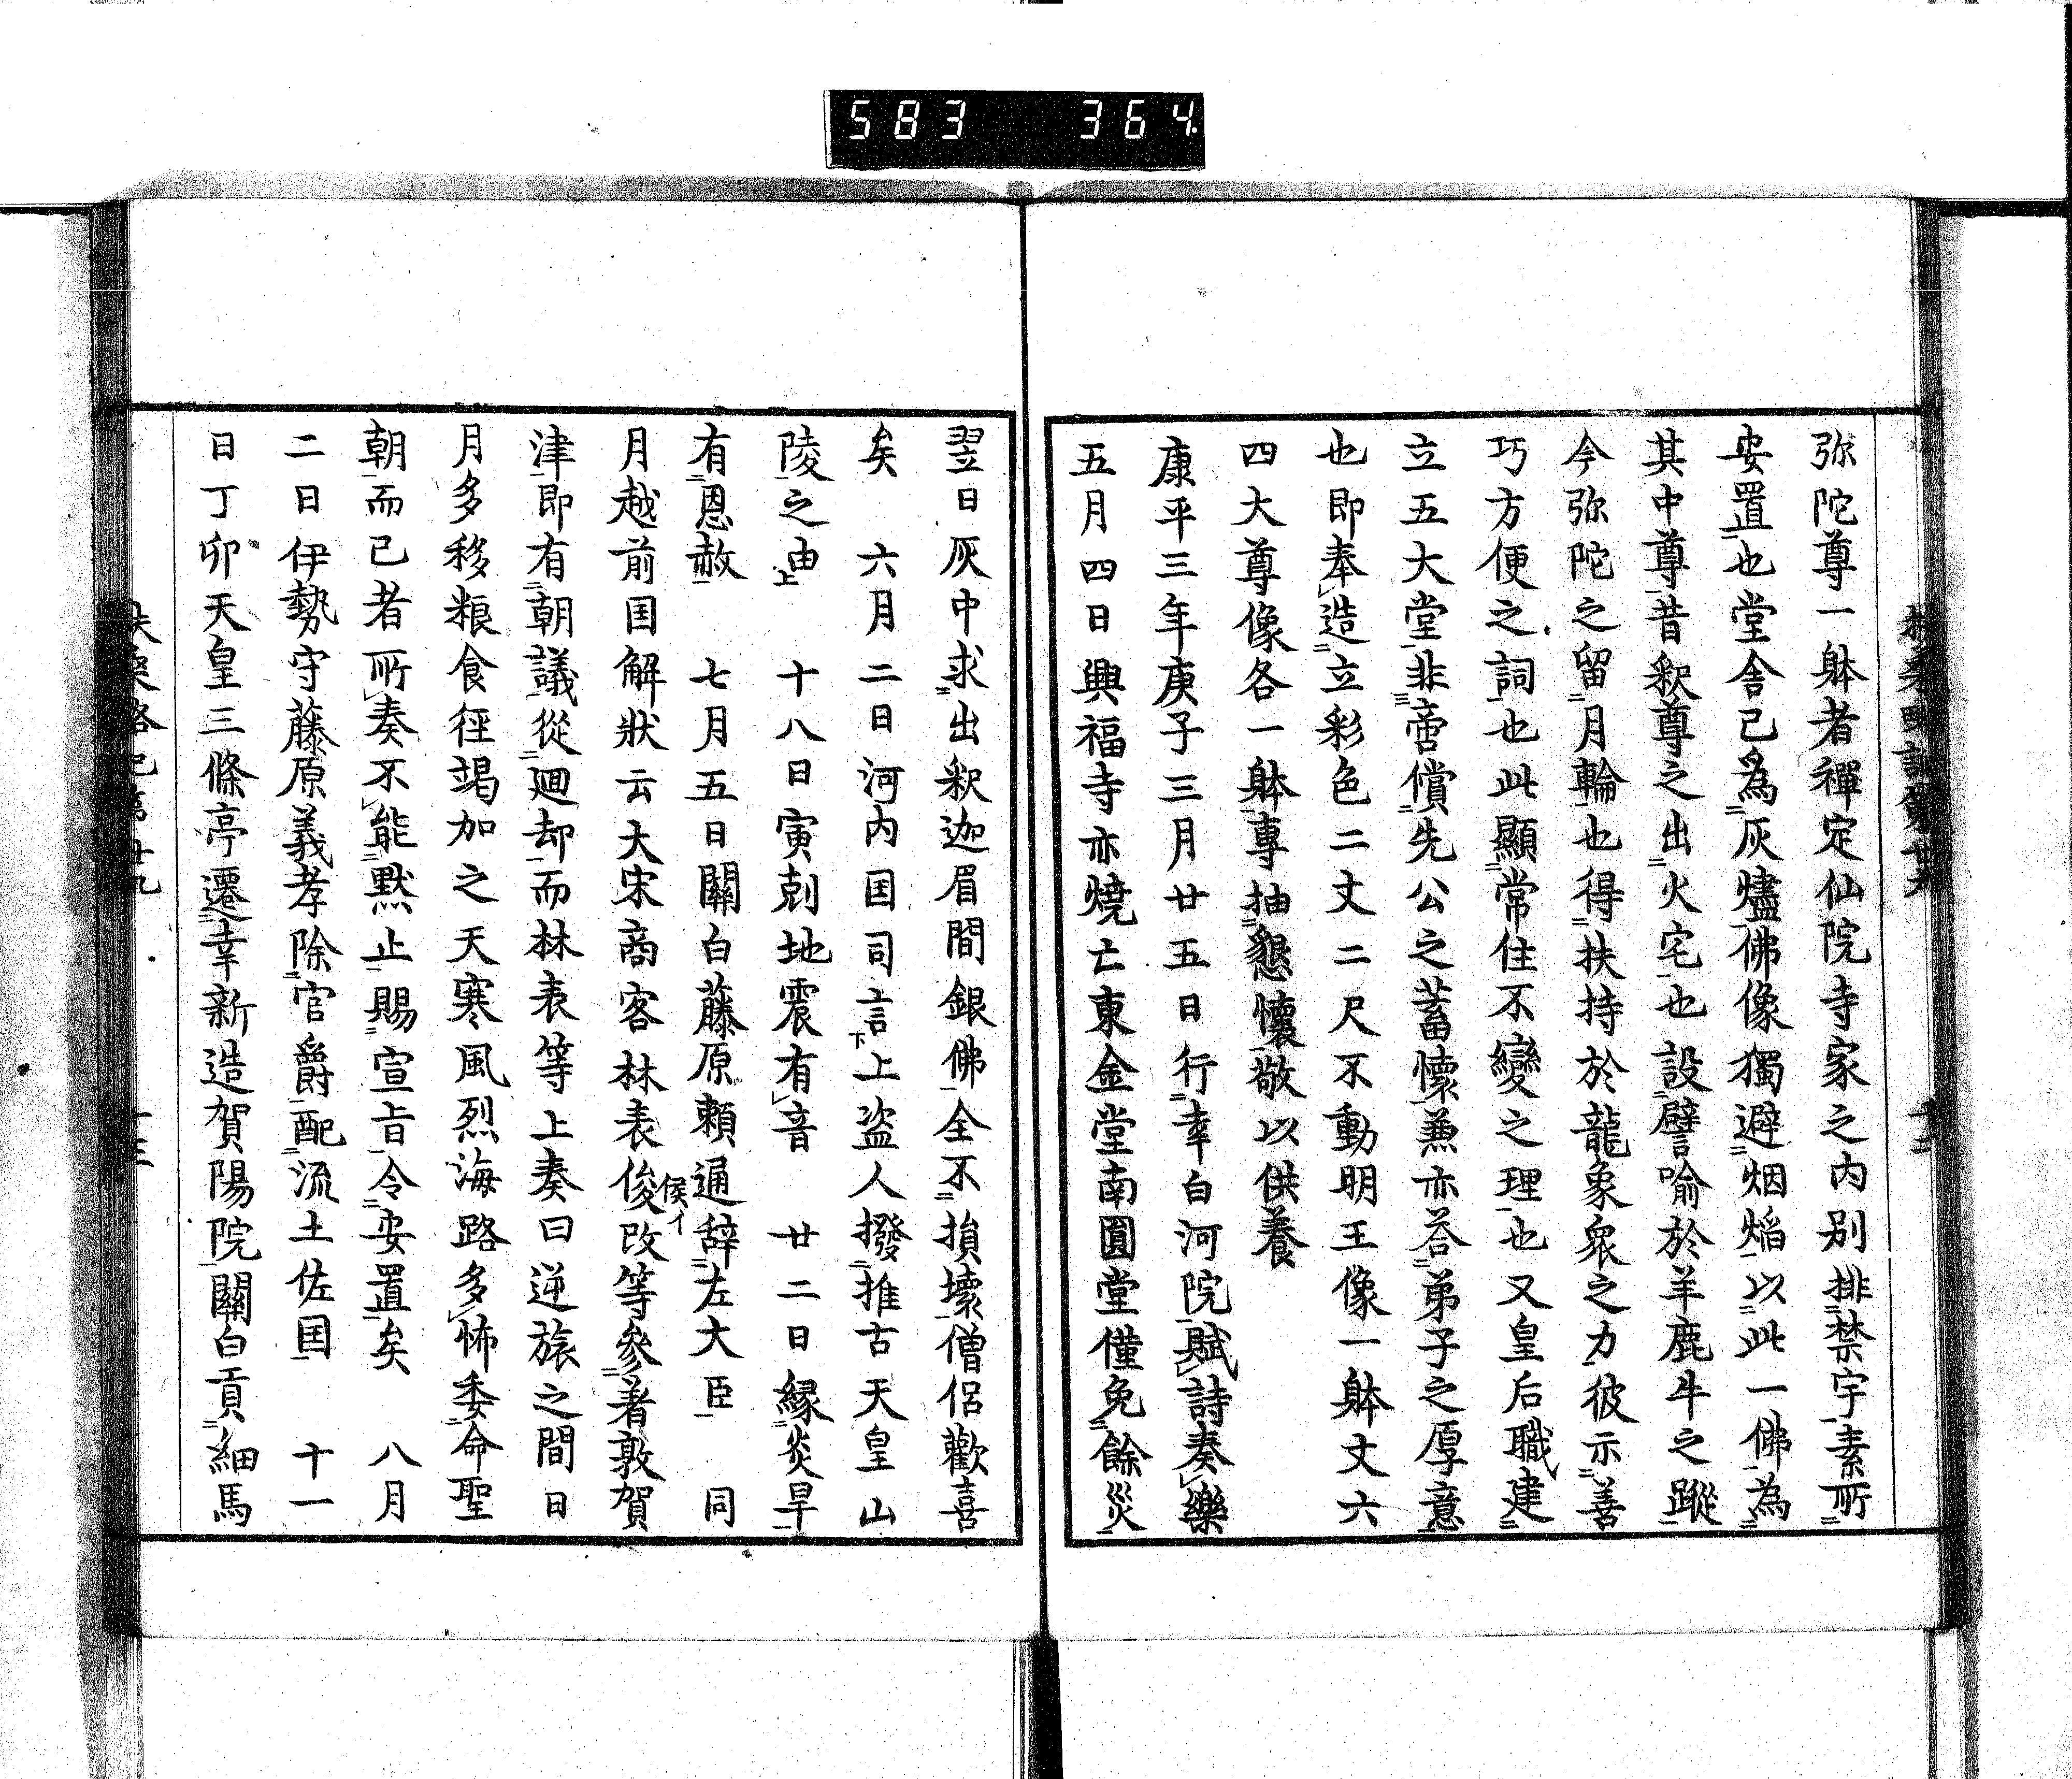 583 364
弥陀尊一躰者禪定仙院寺家之内別排禁宇素所
安置也堂舎已為灰燼佛像獨避烟焔以此一佛為
其中尊昔釈尊之出火宅也設譬喩於羊鹿牛之蹤
今弥陀之留月輪也得扶持於龍象衆之力彼示善
巧方便之詞也此顯常住不變之理也又皇后職建
立五大堂非啻償先公之蓄懐兼亦荅弟子之厚意
也即奉造立彩色二丈二尺不動明王像一躰丈六
四大尊像各一躰専抽懇懐敬以供養
康平三年庚子三月廿五日行幸白河院賦詩奏樂
五月四日興福寺亦焼亡東金堂南圓堂僅免餘災
翌日灰中求出釈迦眉間銀佛全不損壊僧侶歡喜
矣 六月二日河内国司言上盗人撥推古天皇山
陵之由 十八日寅剋地震有音 廿二日縁炎旱
有恩赦 七月五日關白藤原頼通辞左大臣 同
月越前国解狀云大宋商客林表俊改等參著敦賀
俟イ
津即有朝議從廻却而林表等上奏曰逆旅之間日
月多移粮食徑竭加之天寒風烈海路多怖委命聖
朝而已者所奏不能黙止賜宣旨令安置矣 八月
二日伊勢守藤原義孝除官爵配流土佐国 十一
日丁卯天皇三條亭遷幸新造賀陽院關白貢細馬
扶桑略記第廿九